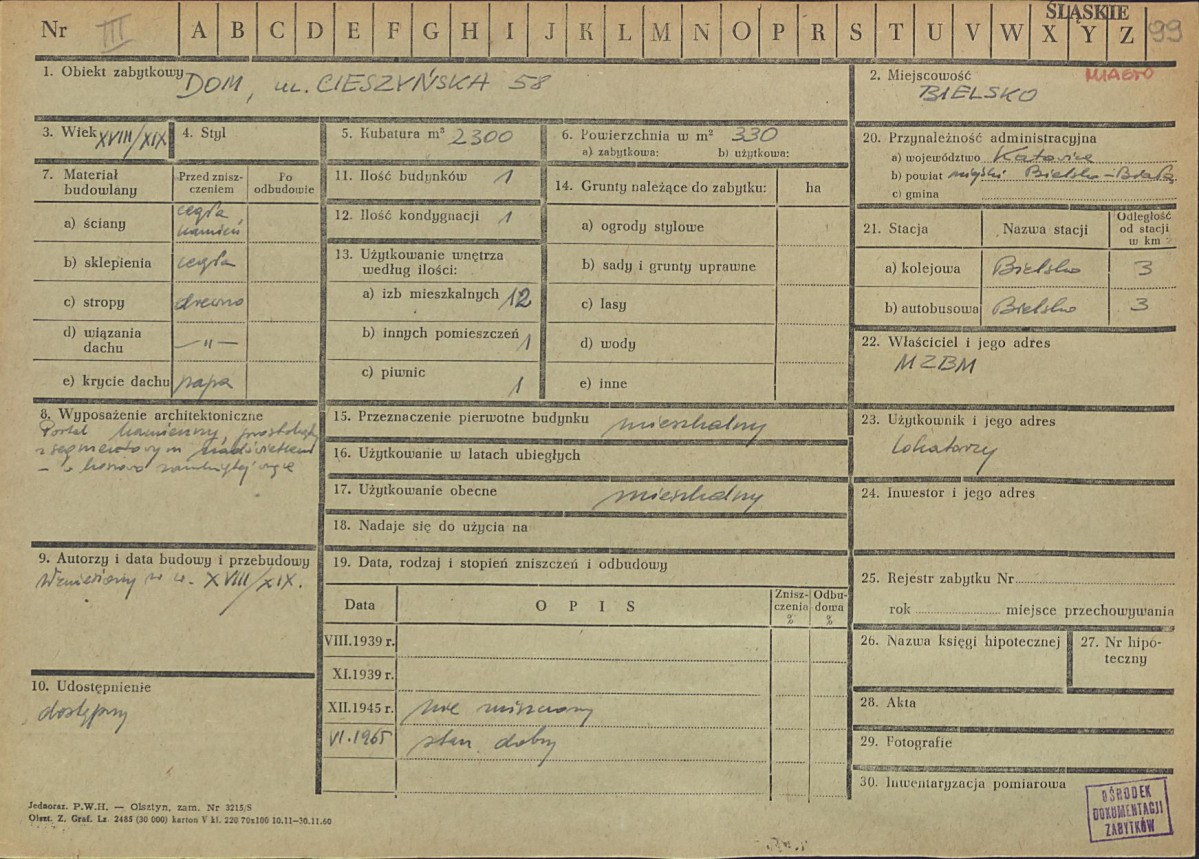 Nr III A B C D E F G H I J K L M N O P R S T U V W X Y Z 99
ŚLĄSKIE
1. Obiekt zabytkowy DOM, ul. CIESZYŃSKA 58
2. Miejscowość MIASTO
BIELSKO
3. Wiek XVIII/XIX
4. Styl
5. Kubatura m³ 2300
6. Powierzchnia w m² 330
a) zabytkowa: b) użytkowa:
7. Materiał budowlany
Przed zniszczeniem
Po odbudowie
a) ściany cegła, kamień
b) sklepienia cegła
c) stropy drewno
d) wiązania dachu — „ —
e) krycie dachu papa
8. Wyposażenie architektoniczne
Portal kamienny, prostokątny
z segmentowym nadświetlem
9. Autorzy i data budowy i przebudowy
Wzniesiony w w. XVIII/XIX.
10. Udostępnienie
dostępny
11. Ilość budynków 1
12. Ilość kondygnacji 1
13. Użytkowanie wnętrza
według ilości:
a) izb mieszkalnych 12
b) innych pomieszczeń 1
c) piwnic 1
14. Grunty należące do zabytku: ha
a) ogrody stylowe
b) sady i grunty uprawne
c) lasy
d) wody
e) inne
15. Przeznaczenie pierwotne budynku mieszkalny
16. Użytkowanie w latach ubiegłych
17. Użytkowanie obecne mieszkalny
18. Nadaje się do użycia na
19. Data, rodzaj i stopień zniszczeń i odbudowy
Data OPIS Zniszczenia % Odbudowa %
VIII.1939 r.
XI.1939 r.
XII.1945 r. nie zniszczony
VI.1965 stan dobry
20. Przynależność administracyjna
a) województwo Katowice
b) powiat miejski Bielsko-Biała
c) gmina
21. Stacja Nazwa stacji Odległość od stacji w km
a) kolejowa Bielsko 3
b) autobusowa Bielsko 3
22. Właściciel i jego adres
MZBM
23. Użytkownik i jego adres
Lokatorzy
24. Inwestor i jego adres
25. Rejestr zabytku Nr
rok miejsce przechowywania
26. Nazwa księgi hipotecznej
27. Nr hipóteczny
28. Akta
29. Fotografie
30. Inwentaryzacja pomiarowa
OŚRODEK
DOKUMENTACJI
ZABYTKÓW
Jednoraz. P.W.H. — Olsztyn, zam. Nr 3215/S
Olszt. Z. Graf. Lz. 2485 (30 000) karton V kl. 220 70x100 10.11—30.11.60